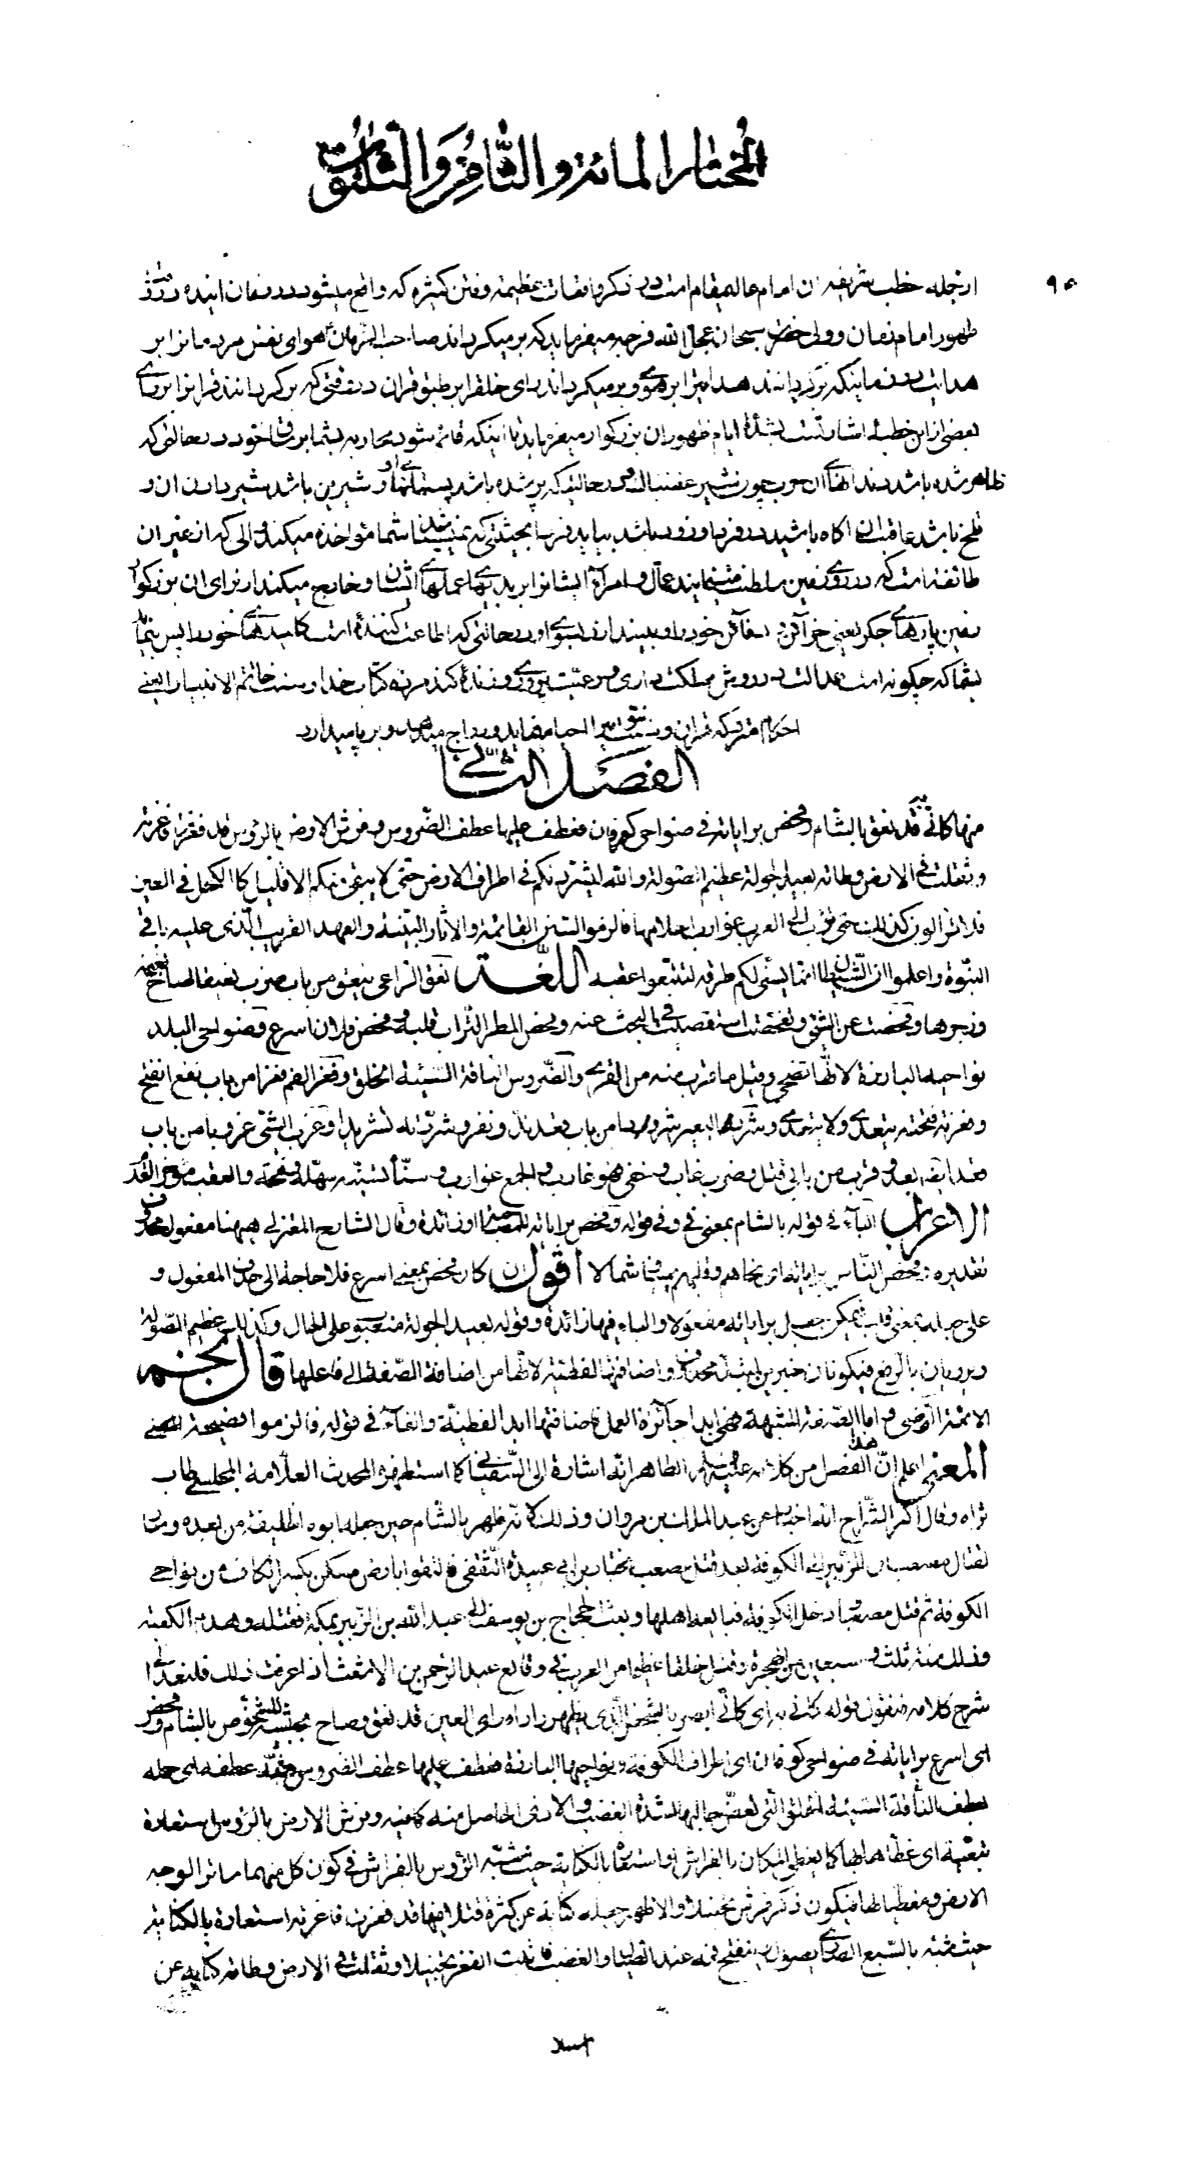 المختار المائة والثامن والثلثون
از جمله خطب شریفه آن امام عالیمقام است در ذکر واقعات عظیمه و فتن کثیره که واقع میشود در زمان آینده
ظهور امام زمان و ولی حضرت سبحان عجل الله فرجه میفرماید که بر میگرداند صاحب الزمان هوای نفس مردمانرا بر
هدایت در زمانیکه برگردانند هدایترا بر هوی و بر میگرداند رای خلق را بر طبق قرآن در وقتی که برگردانند قرآنرا بر رای
بعضی از این خطبه اشارتست بشدة ایام ظهور آن بزرگوار میفرماید تا اینکه قائم شود محاربه بشما بر ساق خود در حالتی که
ظاهر شده باشد دندانهای آن حرب چون شیر غضبناک در حالتیکه پر شده باشد پستانهای او شیرین باشد شیر دادن آن و
تلخ باشد عاقبت آن آگاه باشید در فردا و زود باشد بیاید فردا بچیزی که نمیشناسید شما مؤاخذه میکند والی که از غیر آن
طائفه است که در روی زمین سلطنت مینمایند عمال و امراء ایشانرا بر بدیهای عملهای ایشان و خارج میکند از برای آن بزرگوار
زمین پارهای جگر یعنی خزائن و دفائن خود را و میاندازد بسوی او در حالتی که اطاعت کننده است کلیدهای خود را پس بنماید
بشما که چگونه است عدالت در روش مملکت داری و رعیت پروری و زنده کند مرده کتاب خدا و سنت خاتم الانبیا را یعنی
احکام متروکه قرآن و سنت نبویرا احیا میفرماید و رواج میدهد و بر پا میدارد
الفصل الثاني
منها كأني به قد نعق بالشام وفحص براياته في ضواحي كوفان فعطف عليها عطف الضروس وفرش الارض بالرؤس قد فغرت فاغرته
وثقلت في الارض وطأته بعيد الجولة عظيم الصولة والله ليشردنكم في اطراف الارض حتى لا يبقى منكم الا قليل كالكحل في العين
فلا تزالون كذلك حتى تؤب الى العرب عوازب احلامها فالزموا السنن القائمة والاثار البينة والعهد القريب الذي عليه باقي
النبوة واعلموا ان الشيطان انما يسنى لكم طرقه لتتبعوا عقبه اللغة نعق الراعي ينعق من باب ضرب نعيقا صاح بغنمه
وزجرها وفحصت عن الشيء وتفحصت استقصيت في البحث عنه وفحص المطر التراب قلبه وفحص فلان اسرع وضواحي البلد
نواحيه البارزة لانها تضحى وقيل ما قرب منه من القرى والضروس الناقة السيئة الخلق وفغر الفم فغرا من باب نفع انفتح
وفغرته فتحته يتعدى ولا يتعدى وشرد البعير شرودا من باب قعد ند ونفر وشردته تشريدا وعزب الشيء عزوبا من باب
قعد ايضا بعد وعزب من بابي قتل وضرب غاب وخفى فهو عازب والجمع عوازب وسناه تسنية سهله وفتحه والعقب مؤخر القدم
الاعراب الباء في قوله بالشام بمعنى في وفي قوله وفحص براياته للمصاحبة او زائدة وقال الشارح المعتزلي ههنا مفعول محذوف
تقديره وفحص الناس براياته اي نحاهم وقلبهم يمينا وشمالا اقول ان كان فحص بمعنى اسرع فلا حاجة الى حذف المفعول و
على جعله بمعنى قلب فيمكن جعل براياته مفعولا والباء فيها زائدة وقوله بعيد الجولة منصوب على الحال وكذلك عظيم الصولة
ويرويان بالرفع فيكونان خبرين لمبتدأ محذوف واضافتهما لفظية لانها من اضافة الصفة الى فاعلها قال نجم
الائمة الرضي واما الصفة المشبهة فهي ابدا جائزة العمل فاضافتها ابدا لفظية والفاء في قوله فالزموا فصيحة
المعنى اعلم ان هذا الفصل من كلامه عليه السلام الظاهر انه اشارة الى السفياني كما استظهره المحدث العلامة المجلسي طاب
ثراه وقال اكثر الشراح انه اخبار عن عبد الملك بن مروان وذلك لانه ظهر بالشام حين جعله ابوه الخليفة من بعده وسار
لقتال مصعب بن الزبير الى الكوفة بعد قتل مصعب مختار بن ابي عبيدة الثقفي فالتقوا بارض مسكن بكسر الكاف من نواحي
الكوفة ثم قتل مصعبا ودخل الكوفة فبايعه اهلها وبعث الحجاج بن يوسف الى عبد الله بن الزبير بمكة فقتله وهدم الكعبة
وذلك سنة ثلث وسبعين من الهجرة وقتل خلقا عظيما من العرب في وقايع عبد الرحمن بن الاشعث اذا عرفت ذلك فلنعد الى
شرح كلامه فنقول قوله كأني به اي كأني ابصر بالشخص الذي يظهر واراه رأى العين قد نعق وصاح بجيشه للشخوص بالشام وفحص
اي اسرع براياته في ضواحي كوفان اي اطراف الكوفة ونواحيها البارزة فعطف عليها عطف الضروس عطفه اى حمله
بعطف الناقة السيئة الخلق التي تعض حالبها لشدة الغضب والاذى الحاصل منه كما فيه وفرش الارض بالرؤس استعارة
تبعية اى غطاها بها كما يغطى المكان بالفراش او استعارة بالكناية حيث شبه الرؤس بالفراش في كون كل منهما ساترا لوجه
الارض ومغطيا لها فيكون ذكر فرش تخييلا والاظهر جعله كناية عن كثرة قتلاه فيها قد فغرت فاغرته استعارة بالكناية
حيث شبه بالسبع الضاري يصول فينفتح فمه عند الصيال والغضب فاثبت الفغر تخييلا وثقلت في الارض وطأته كناية عن